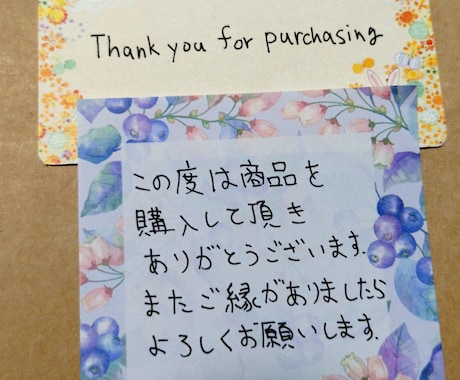 Thank you for purchasing
この度は商品を
購入して頂き
ありがとうございます.
またご縁がありましたら
よろしくお願いします.